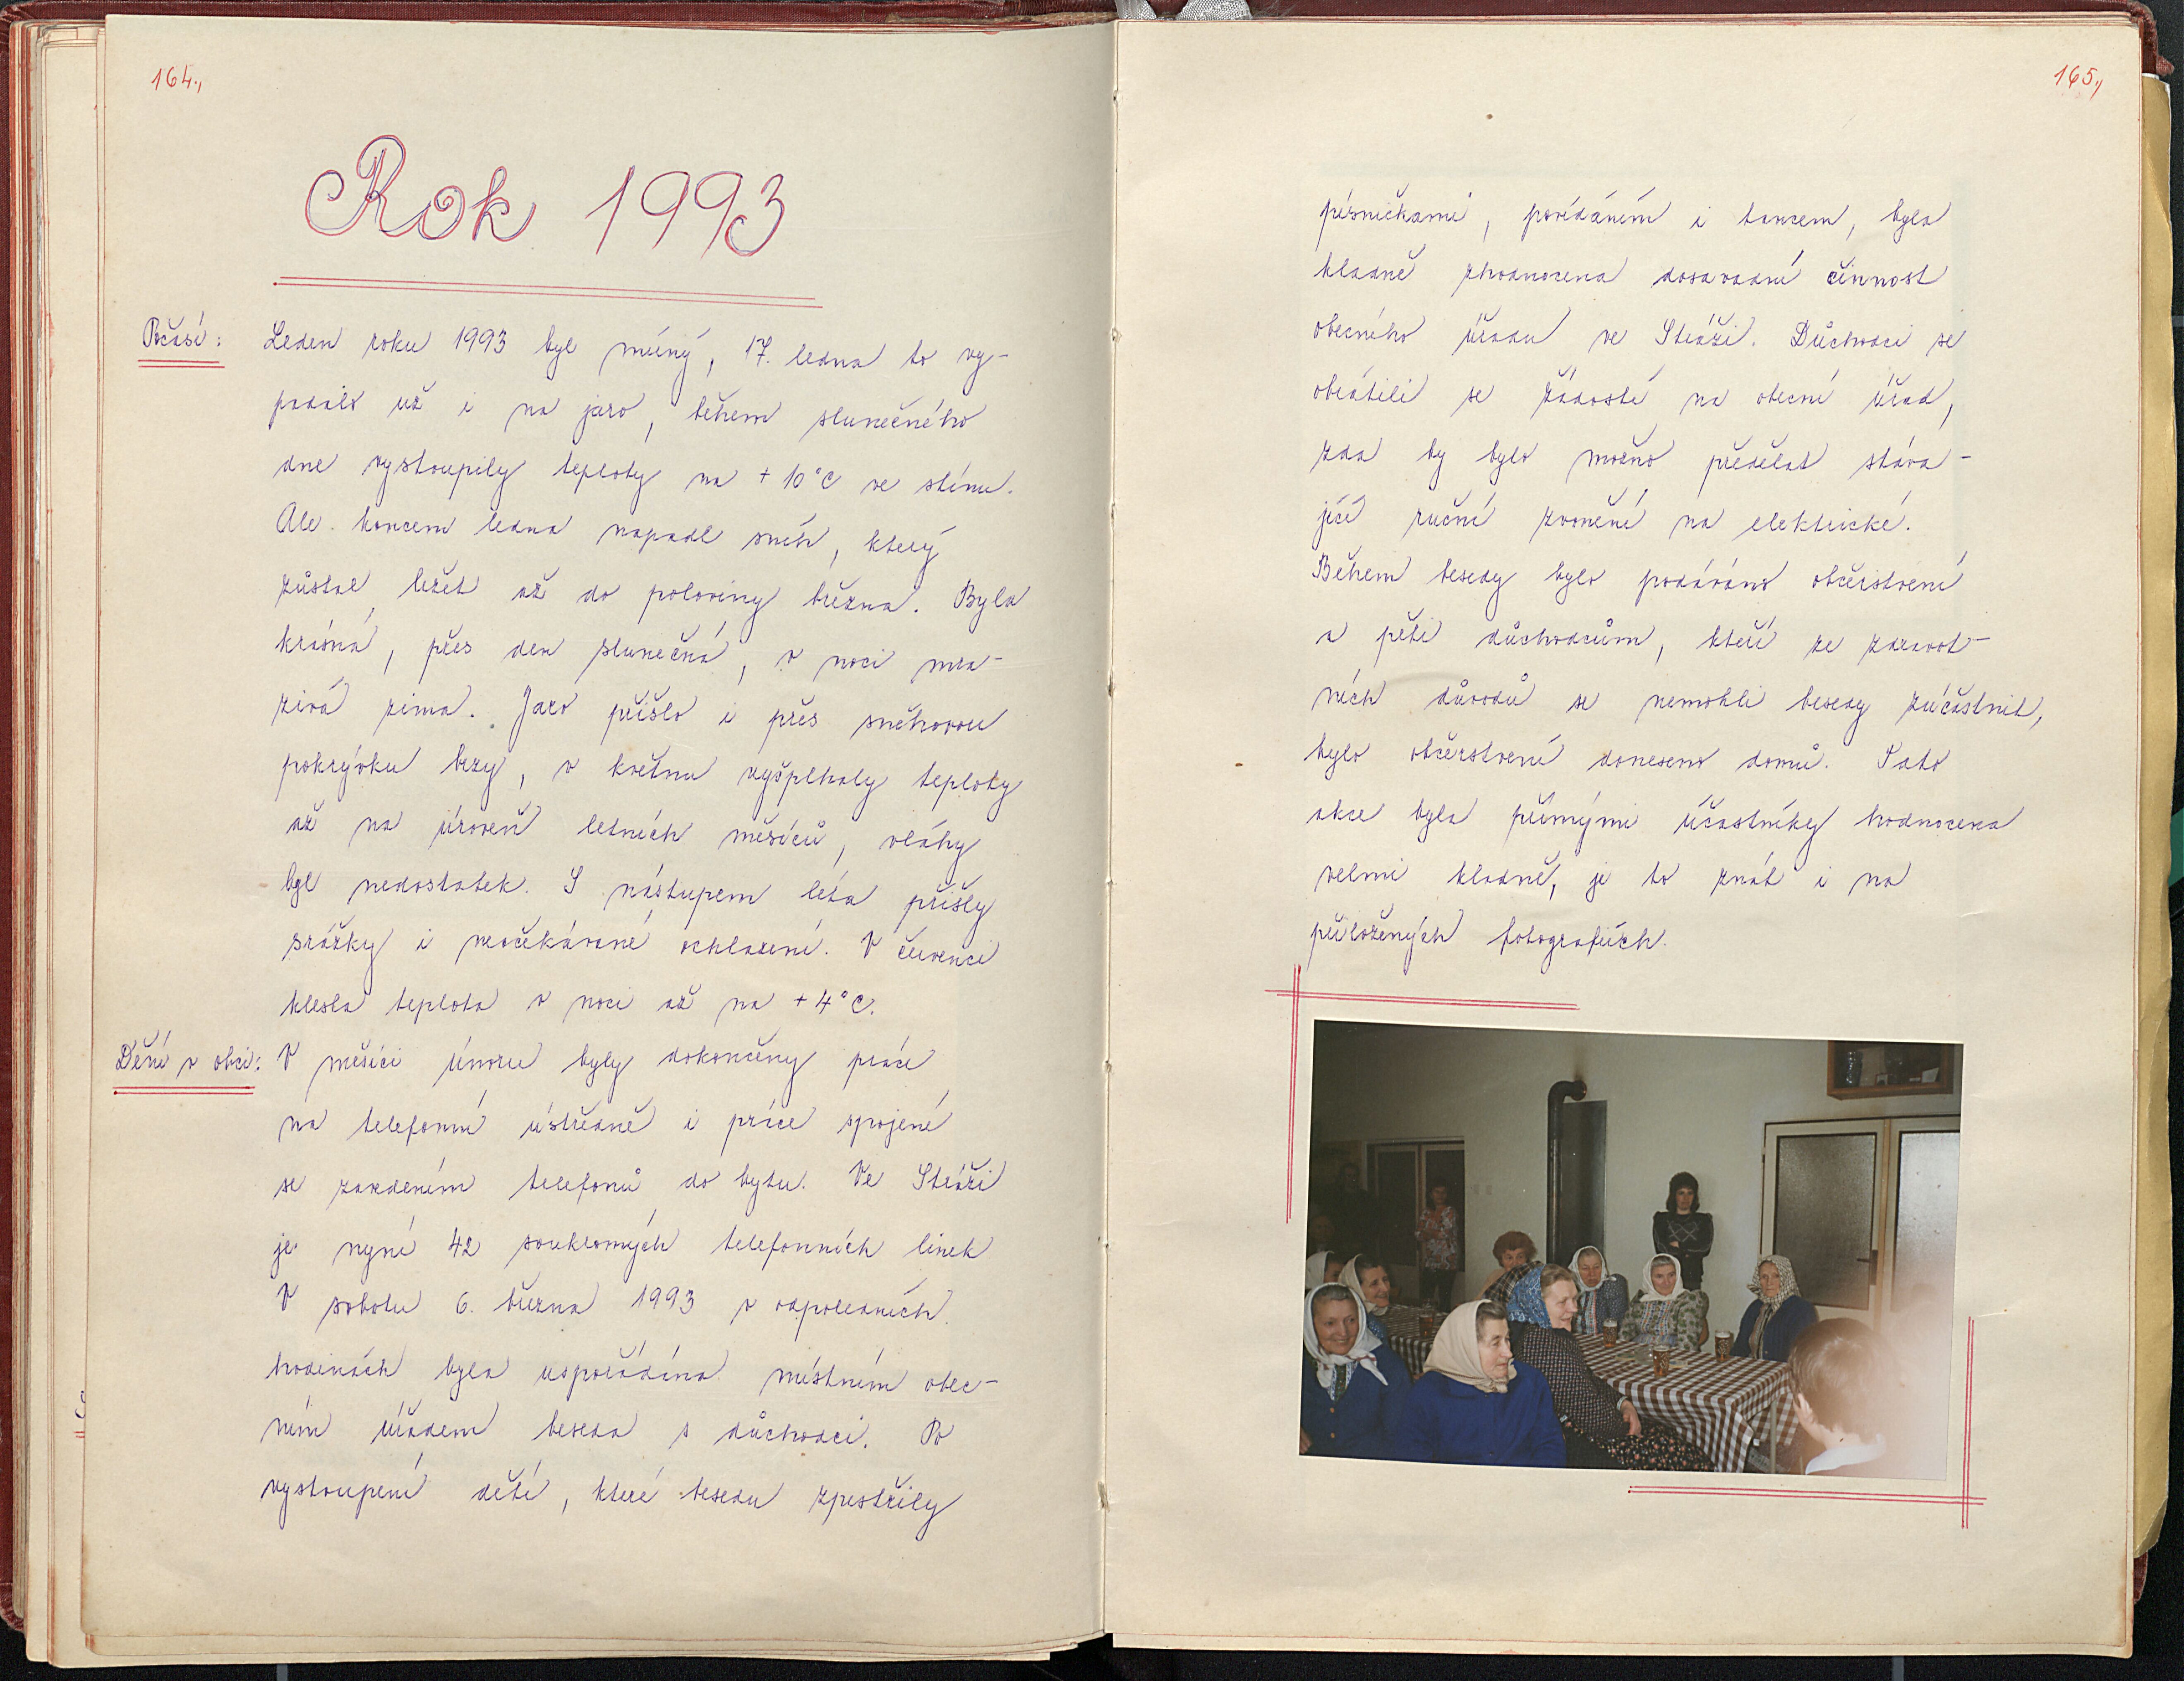 164.,
Rok 1993
Počasí:
Leden roku 1993 byl mírný, 17. ledna to vy-
padalo už i na jaro, během slunečného
dne vystoupily teploty na +10°C ve stínu.
Ale koncem ledna napadl sníh, který
zůstal ležet až do poloviny března. Byla
krásná, přes den slunečná, v noci mra-
zivá zima. Jaro přišlo i přes sněhovou
pokrývku brzy, v květnu vyšplhaly teploty
až na úroveň letních měsíců, vláhy
byl nedostatek. S nástupem léta přišly
srážky i neočekávané ochlazení. V červenci
klesla teplota v noci až na +4°C.
Dění v obci:
V měsíci únoru byly dokončeny práce
na telefonní ústředně i práce spojené
se zavdením telefonů do bytu. Ve Stráži
je nyní 42 soukromých telefonních linek
V sobotu 6. března 1993 v odpoledních
hodinách byla uspořádána místním obec-
ním úřadem beseda s důchodci. Po
vystoupení dětí, které besedu zpestřily
165.,
písničkami, povídáním i tancem, byla
kladně zhodnocena dosavadní činnost
obecního úřadu ve Stráži. Důchodci se
obrátili se žádostí na obecní úřad,
zda by bylo možno předělat stáva-
jící ruční zvonění na elektrické.
Během besedy bylo podáváno občerstvení
a pěti důchodcům, kteří ze zdravot-
ních důvodů se nemohli besedy zúčastnit,
bylo občerstvení doneseno domů. Tato
akce byla přímými účastníky hodnocena
velmi kladně, je to znát i na
přiložených fotografiích.